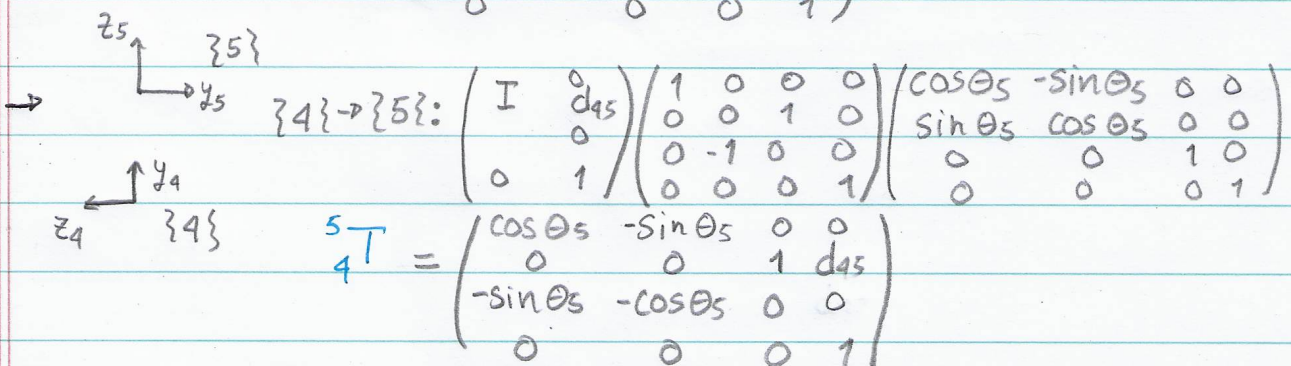 0 0 0 1)
z5 {5}
→ y5 {4}→{5}: (I 0 d45 0 0 1) (1 0 0 0 0 0 1 0 0 -1 0 0 0 0 0 1) (cosθ5 -sinθ5 0 0 sinθ5 cosθ5 0 0 0 0 1 0 0 0 0 1)
y4
z4 {4}
5 4 T = (cosθ5 -sinθ5 0 0
0 0 1 d45
-sinθ5 -cosθ5 0 0
0 0 0 1)